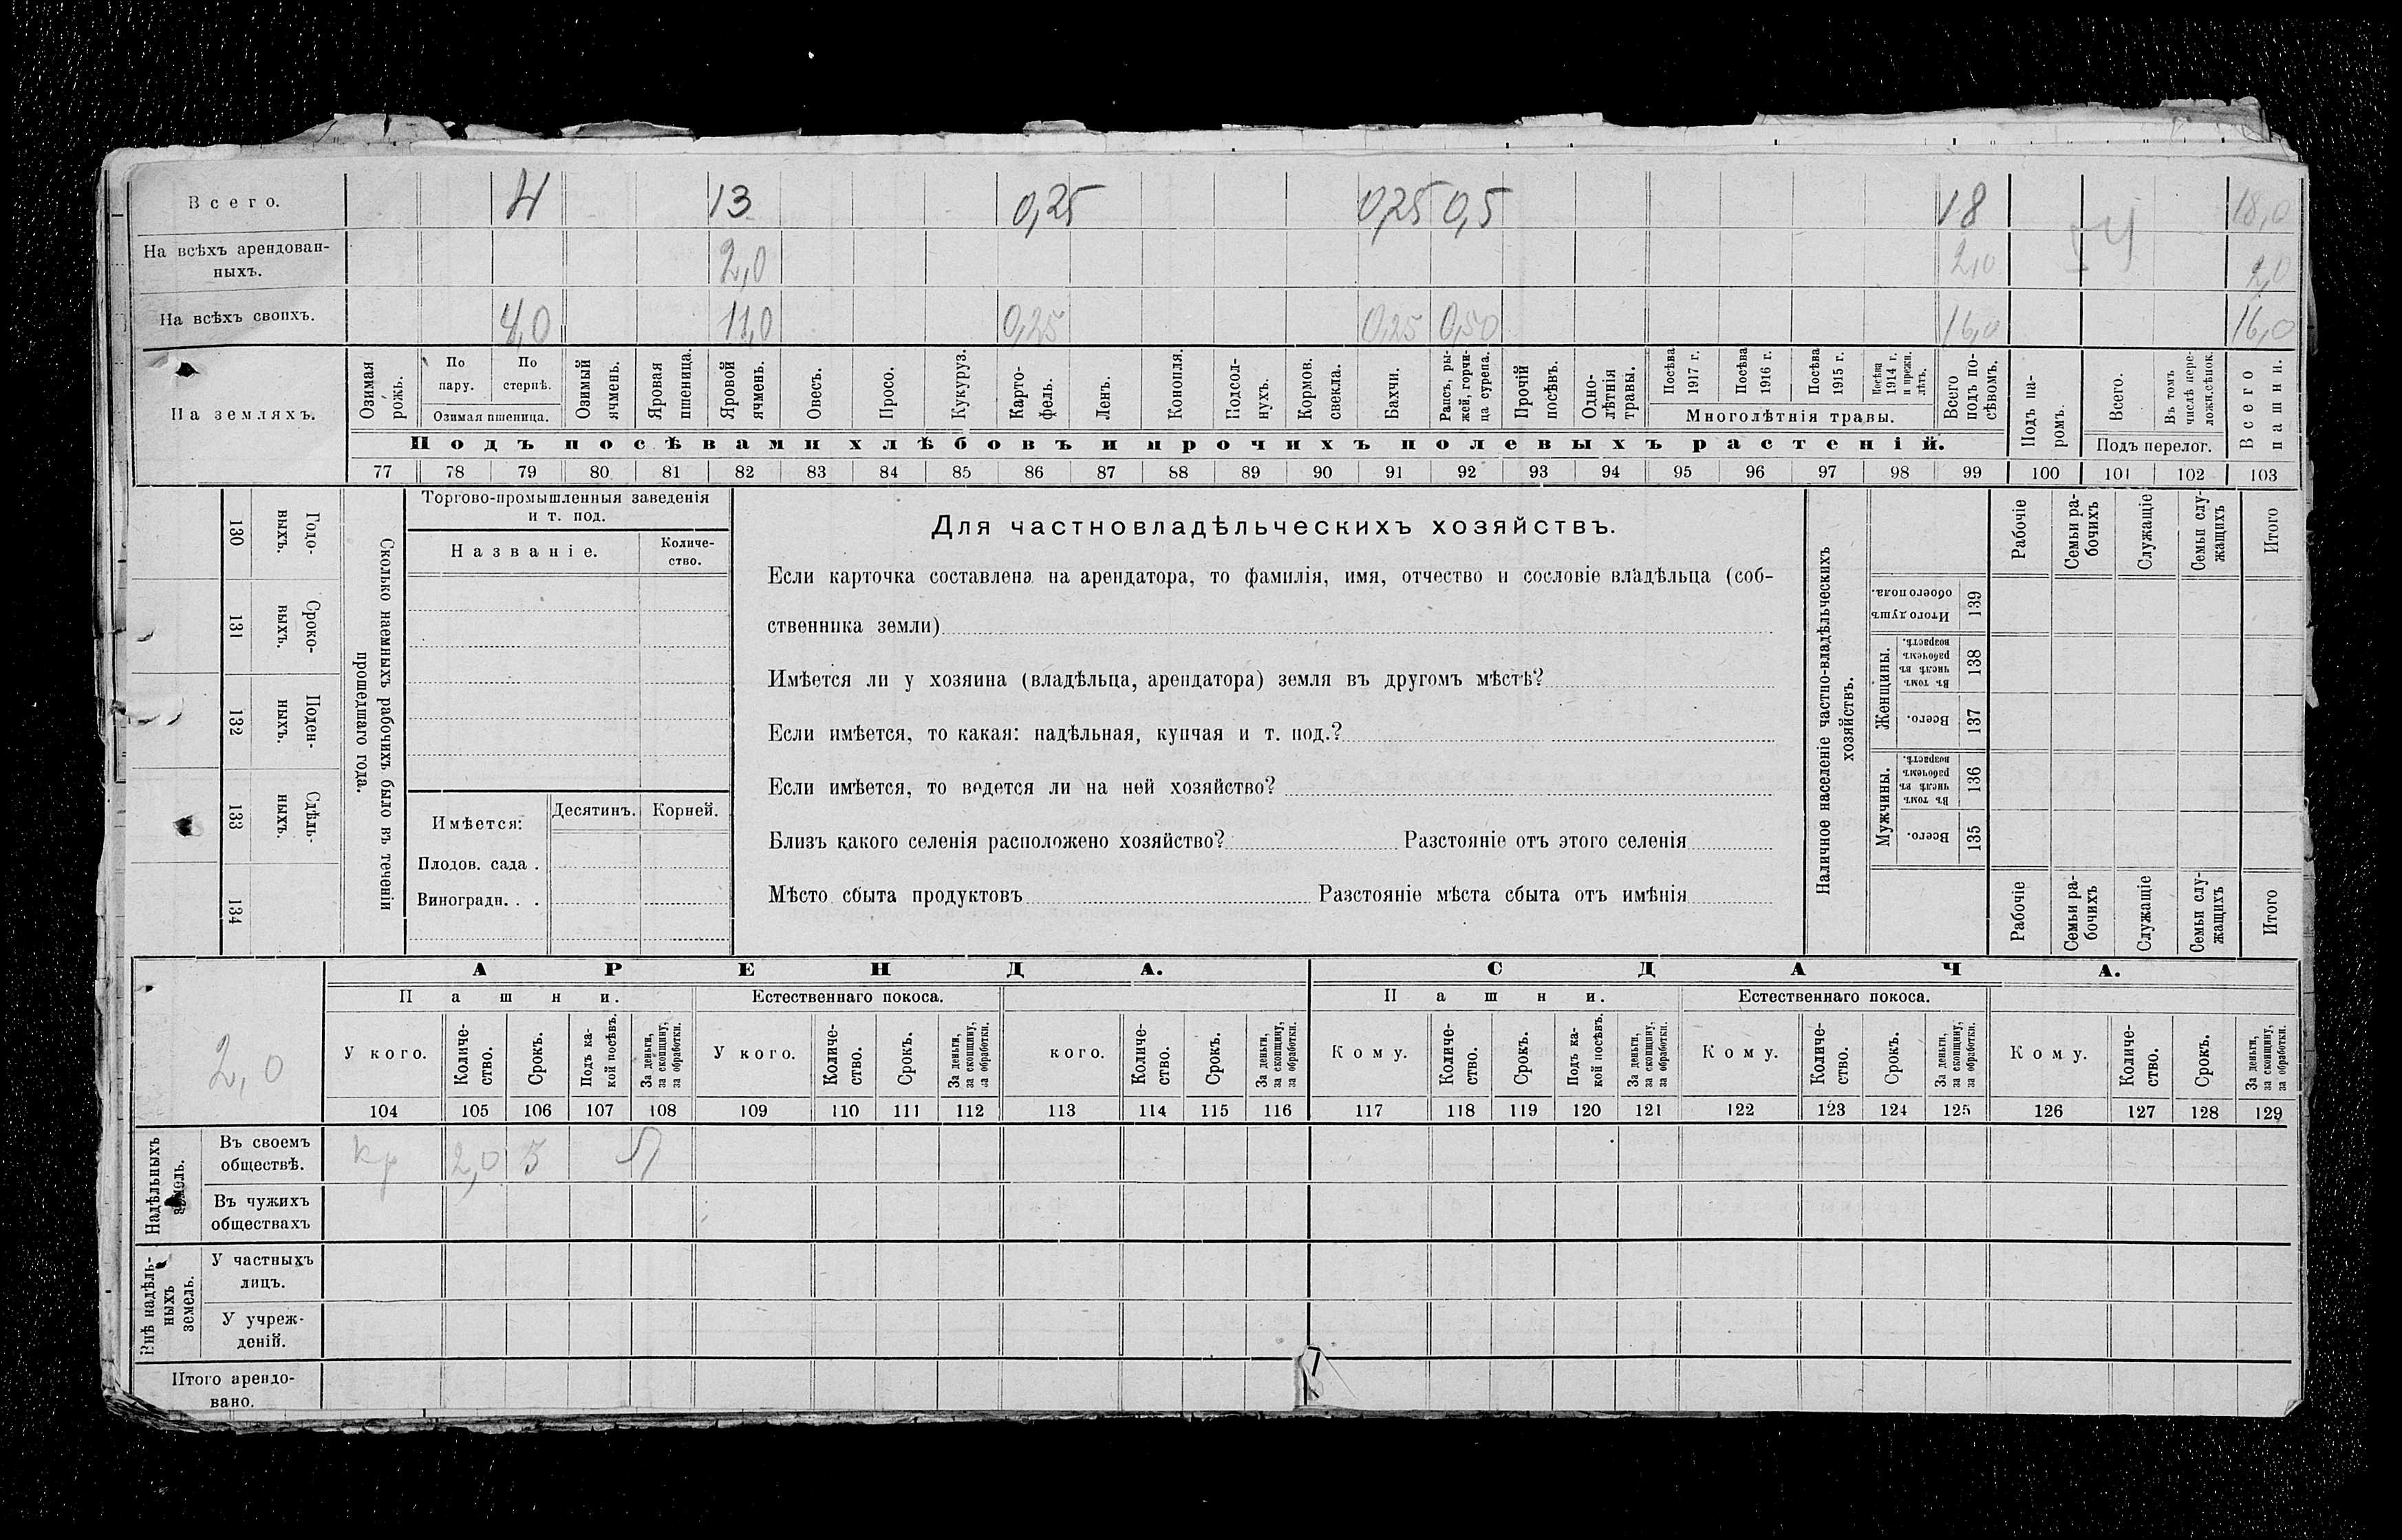 Всего. 4 13 0,25 0,25 0,5 18 18,0
На всѣхъ арендован-
ныхъ. 2,0 2,0 2,0
На всѣхъ своихъ. 4,0 11,0 0,25 0,25 0,50 16,0 16,0
На земляхъ.
Озимая рожь.
По пару.
По стернѣ.
Озимая пшеница.
Озимый ячмень.
Яровая пшеница.
Яровой ячмень.
Овесъ.
Просо.
Кукуруз.
Карто-
фель.
Ленъ.
Конопля.
Подсол-
нухъ.
Кормов. свекла.
Бахчи.
Рапсъ, ры-
жей, горчи-
ца сурепа.
Прочій посѣвъ.
Одно-
лѣтнія травы.
Посѣва 1917 г.
Посѣва 1916 г.
Посѣва 1915 г.
Посѣва 1914 г. и прежн. лѣтъ.
Многолѣтнія травы.
Всего подъ по-
сѣвомъ.
Подъ посѣвами хлѣбовъ и прочихъ полевыхъ растеній.
Подъ па-
ромъ.
Всего.
Въ томъ числѣ пере-
ложн. сѣнок.
Подъ перелог.
Всего пашни.
77 78 79 80 81 82 83 84 85 86 87 88 89 90 91 92 93 94 95 96 97 98 99 100 101 102 103
130 Годо-
выхъ.
131 Сроко-
выхъ.
132 Поден-
ныхъ.
133 Сдѣль-
ныхъ.
134
Сколько наемныхъ рабочихъ было въ теченіи
прошедшаго года.
Торгово-промышленныя заведенія
и т. под.
Названіе.
Количе-
ство.
Имѣется: Десятинъ. Корней.
Плодов. сада .
Виноградн. . .
Для частновладѣльческихъ хозяйствъ.
Если карточка составлена на арендатора, то фамилія, имя, отчество и сословіе владѣльца (соб-
ственника земли)
Имѣется ли у хозяина (владѣльца, арендатора) земля въ другомъ мѣстѣ?
Если имѣется, то какая: надѣльная, купчая и т. под.?
Если имѣется, то ведется ли на ней хозяйство?
Близъ какого селенія расположено хозяйство? Разстояніе отъ этого селенія
Мѣсто сбыта продуктовъ Разстояніе мѣста сбыта отъ имѣнія
Наличное населеніе частно-владѣльческихъ
хозяйствъ.
Рабочіе
Семьи ра-
бочихъ
Служащіе
Семьи слу-
жащихъ
Итого
Итого душъ обоего пола. 139
Женщины.
Въ томъ числѣ въ рабочемъ возрастѣ. 138
Всего. 137
Мужчины.
Въ томъ числѣ въ рабочемъ возрастѣ. 136
Всего. 135
Рабочіе
Семьи ра-
бочихъ
Служащіе
Семьи слу-
жащихъ
Итого
2,0
АРЕНДА.
Пашни. Естественнаго покоса.
У кого.
Количе-
ство.
Срокъ.
Подъ ка-
кой посѣвъ.
За деньги,
за скопщину,
за обработки.
У кого.
Количе-
ство.
Срокъ.
За деньги,
за скопщину,
за обработки.
кого.
Количе-
ство.
Срокъ.
За деньги,
за скопщину,
за обработки.
104 105 106 107 108 109 110 111 112 113 114 115 116
СДАЧА.
Пашни. Естественнаго покоса.
Кому.
Количе-
ство.
Срокъ.
Подъ ка-
кой посѣвъ.
За деньги,
за скопщину,
за обработки.
Кому.
Количе-
ство.
Срокъ.
За деньги,
за скопщину,
за обработки.
Кому.
Количе-
ство.
Срокъ.
За деньги,
за скопщину,
за обработки.
117 118 119 120 121 122 123 124 125 126 127 128 129
Надѣльныхъ земель.
Въ своемъ
обществѣ. кр 2,0
Въ чужихъ
обществахъ
Внѣ надѣль-
ныхъ
земель.
У частныхъ
лицъ.
У учреж-
деній.
Итого арендо-
вано.